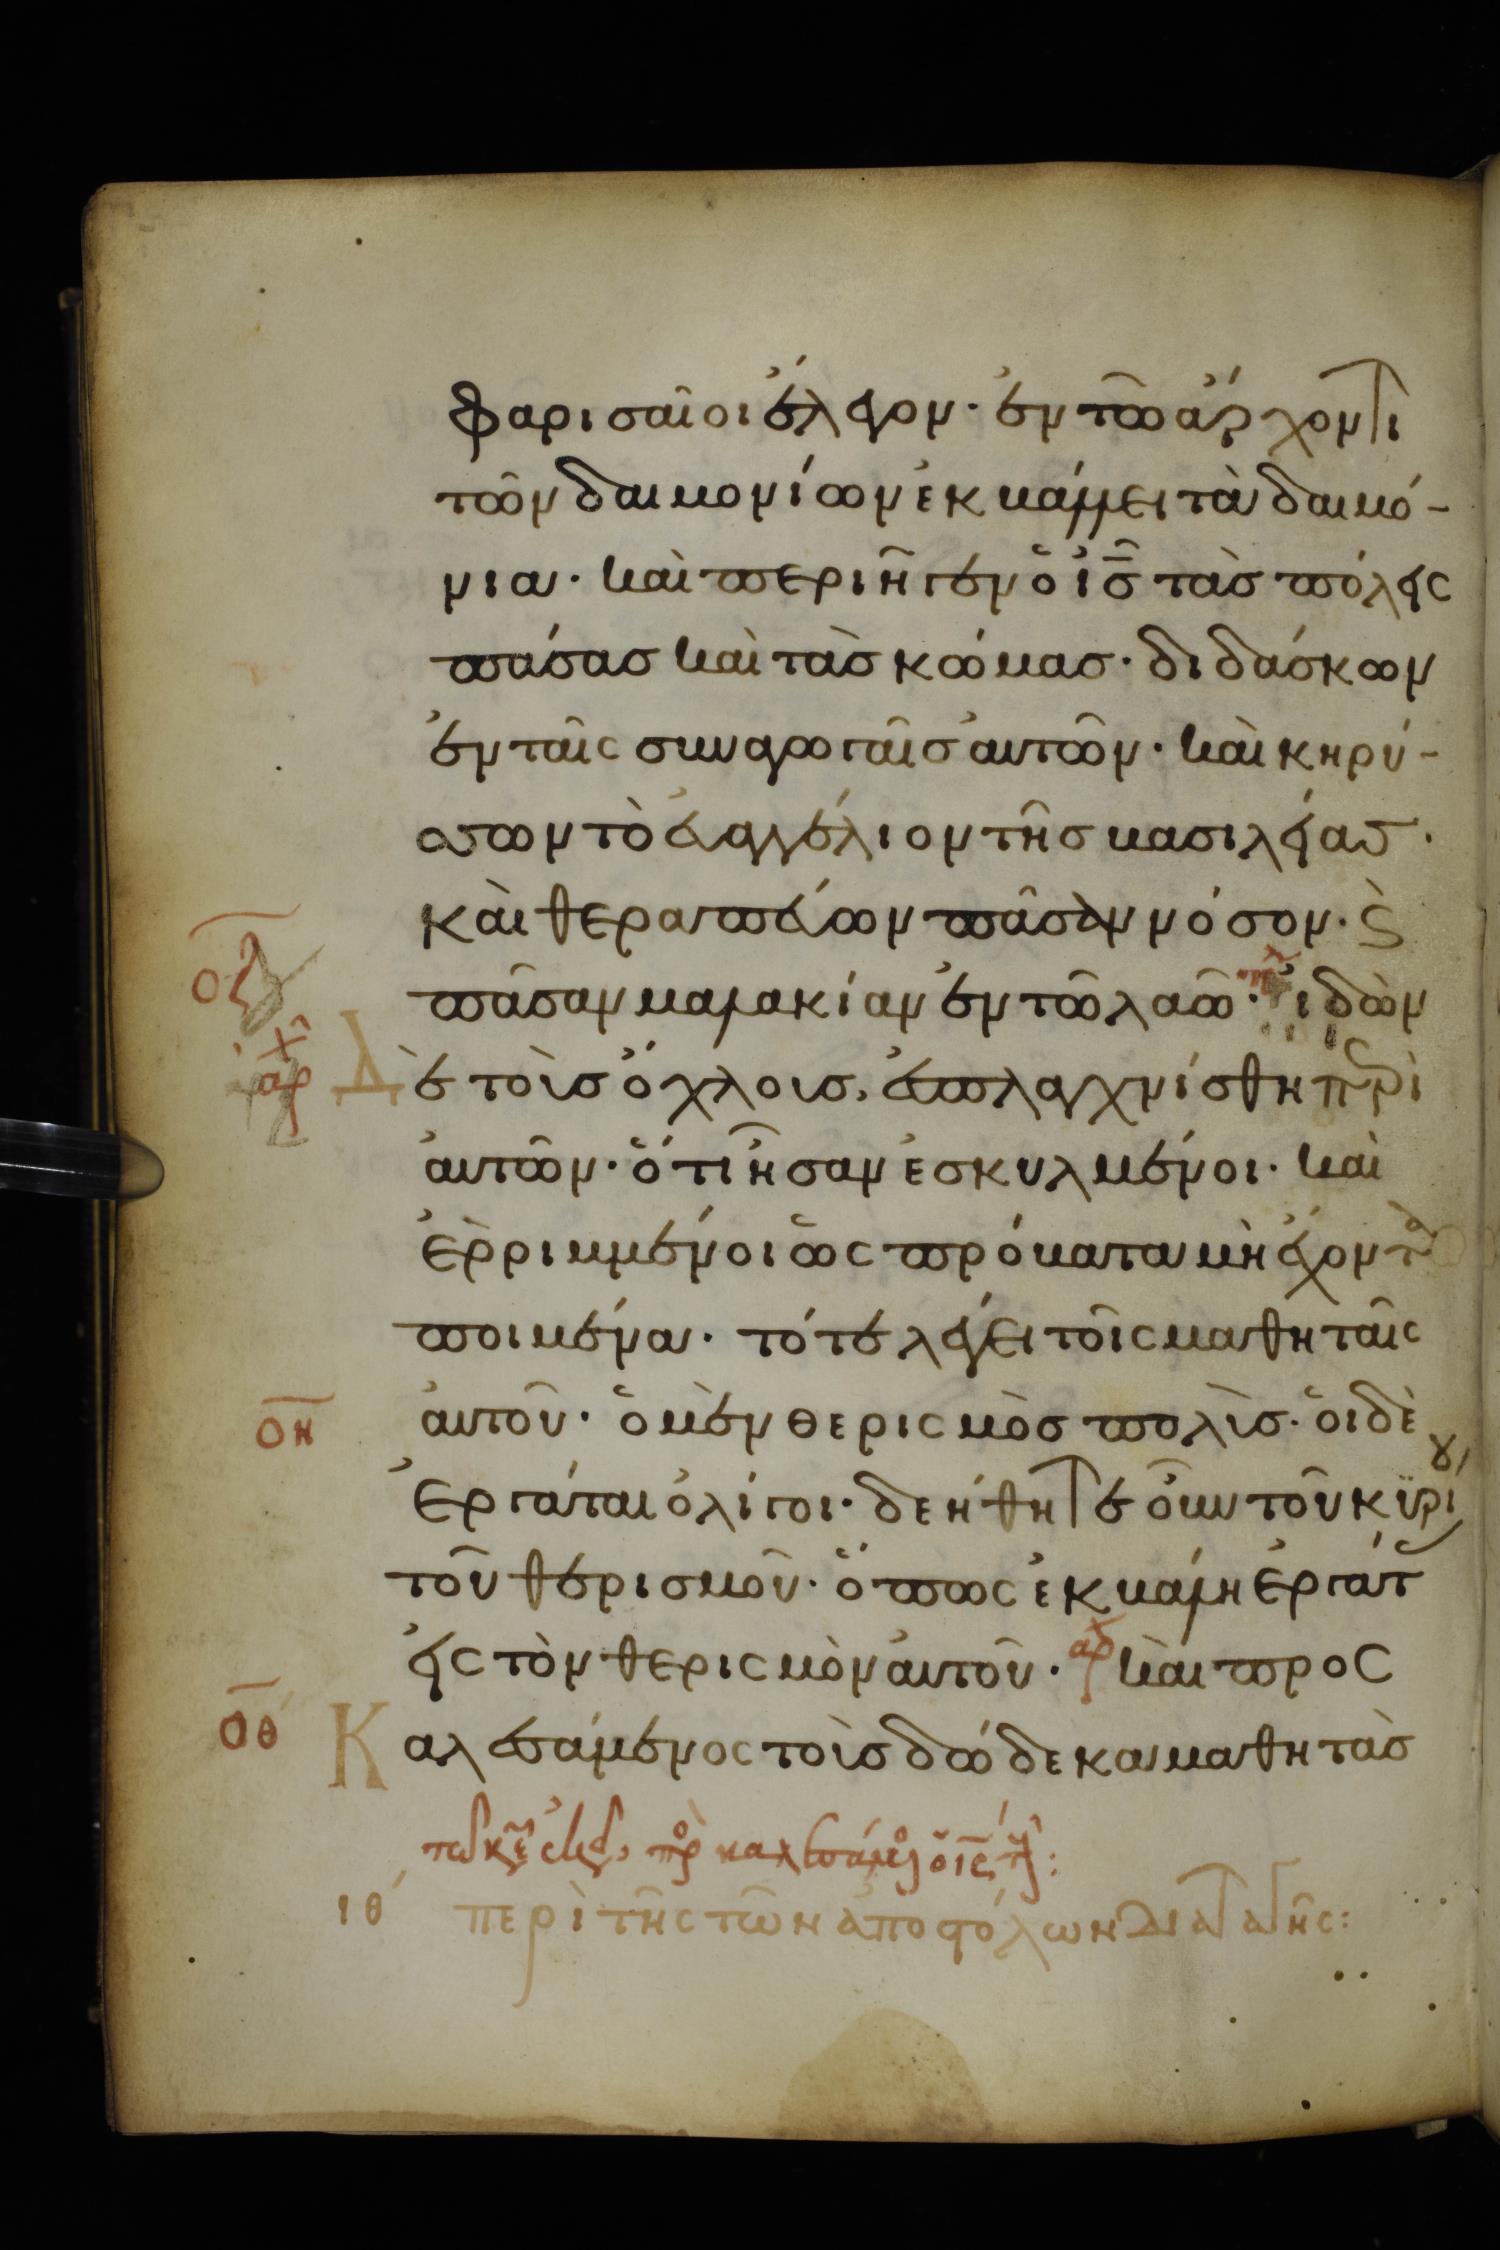 φαρισαῖοι ἔλεγον· ἐν τῶ ἄρχοντι
τῶν δαιμονίων ἐκβάλλει τὰ δαιμό-
νια· καὶ περιῆγεν ὁ ἰς τὰσ πόλεις
πάσασ καὶ τὰσ κώμασ· διδάσκων
ἐν ταῖς συναγωγαῖσ αὐτῶν· καὶ κηρύ-
σσων τὸ εὐαγγέλιον τῆσ βασιλείασ·
καὶ θεραπεύων πᾶσαν νόσον· ϗ
πᾶσαν μαλακίαν ἐν τῶ λαῶ· ἰδὼν
οζ
αρχ
Δὲ τοὺσ ὄχλουσ, ἐσπλαγχνίσθη περὶ
αὐτῶν· ὅτι ἦσαν ἐσκυλμένοι· καὶ
ἐρριμμένοι ὡς πρόβατα μὴ ἔχοντα
ποιμένα· τότε λέγει τοῖς μαθηταῖς
οη
αὐτοῦ· ὁ μὲν θερισμὸσ πολὺσ· οἱ δὲ
ἐργάται ὀλίγοι· δεήθητε οὖν τοῦ κυρίου
τοῦ θερισμοῦ· ὅπως ἐκβάλη ἐργάτ
εἰς τὸν θερισμὸν αὐτοῦ· αρχ καὶ προσ
οθ
Καλεσάμενος τοὺσ δώδεκα μαθητὰσ
ιθ περὶ τῆς τῶν ἀποστόλων διαταγῆς: